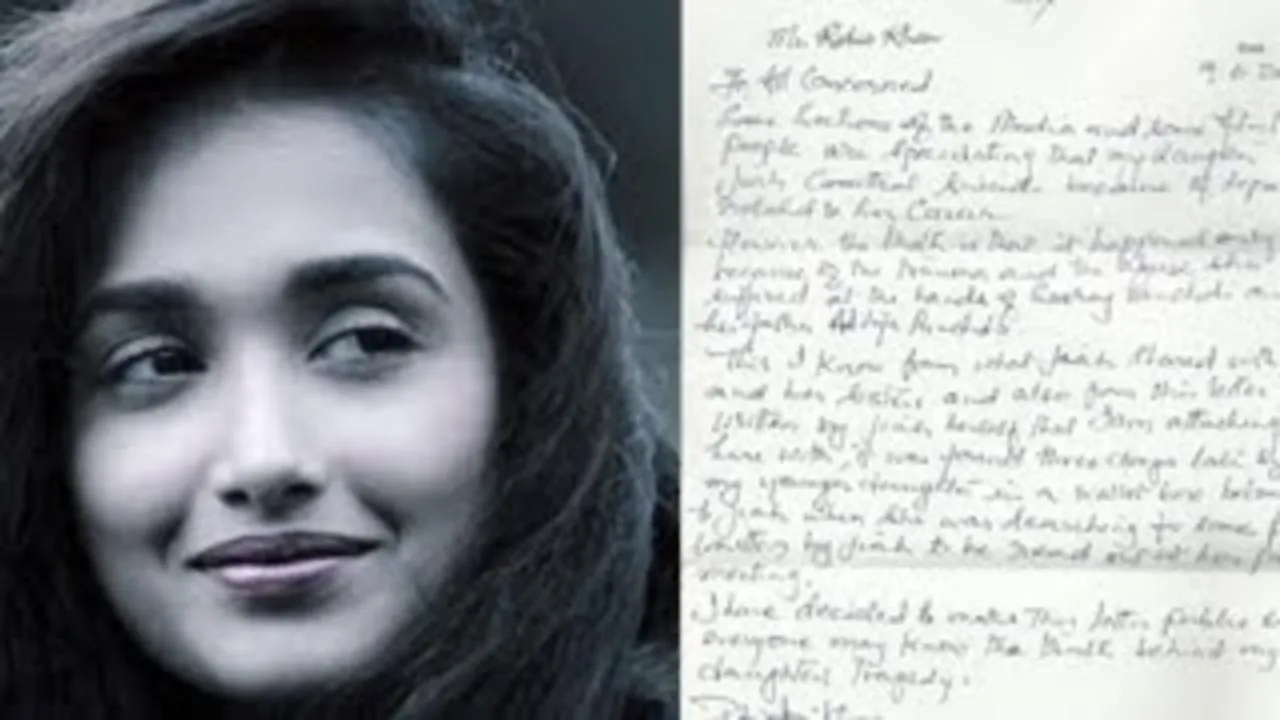 To All Concerned
Some Sections of the Media and some
people are speculating that my daughter
Jiah Committed Suicide because of
related to her Career
However the truth is that it happened only
because of the trauma and the abuse she
suffered at the hands of Sooraj Pancholi
his father Aditya Pancholi
This I know from what Jiah Shared with
and her sisters and also from this letter
written by Jiah herself that I am attaching
here with, it was found three days late by
my younger daughter in a wallet box
to Jiah when she was searching for some
written by Jiah to be read out at her
meeting.
I have decided to make this letter public
everyone may know the truth behind my
daughters Tragedy.